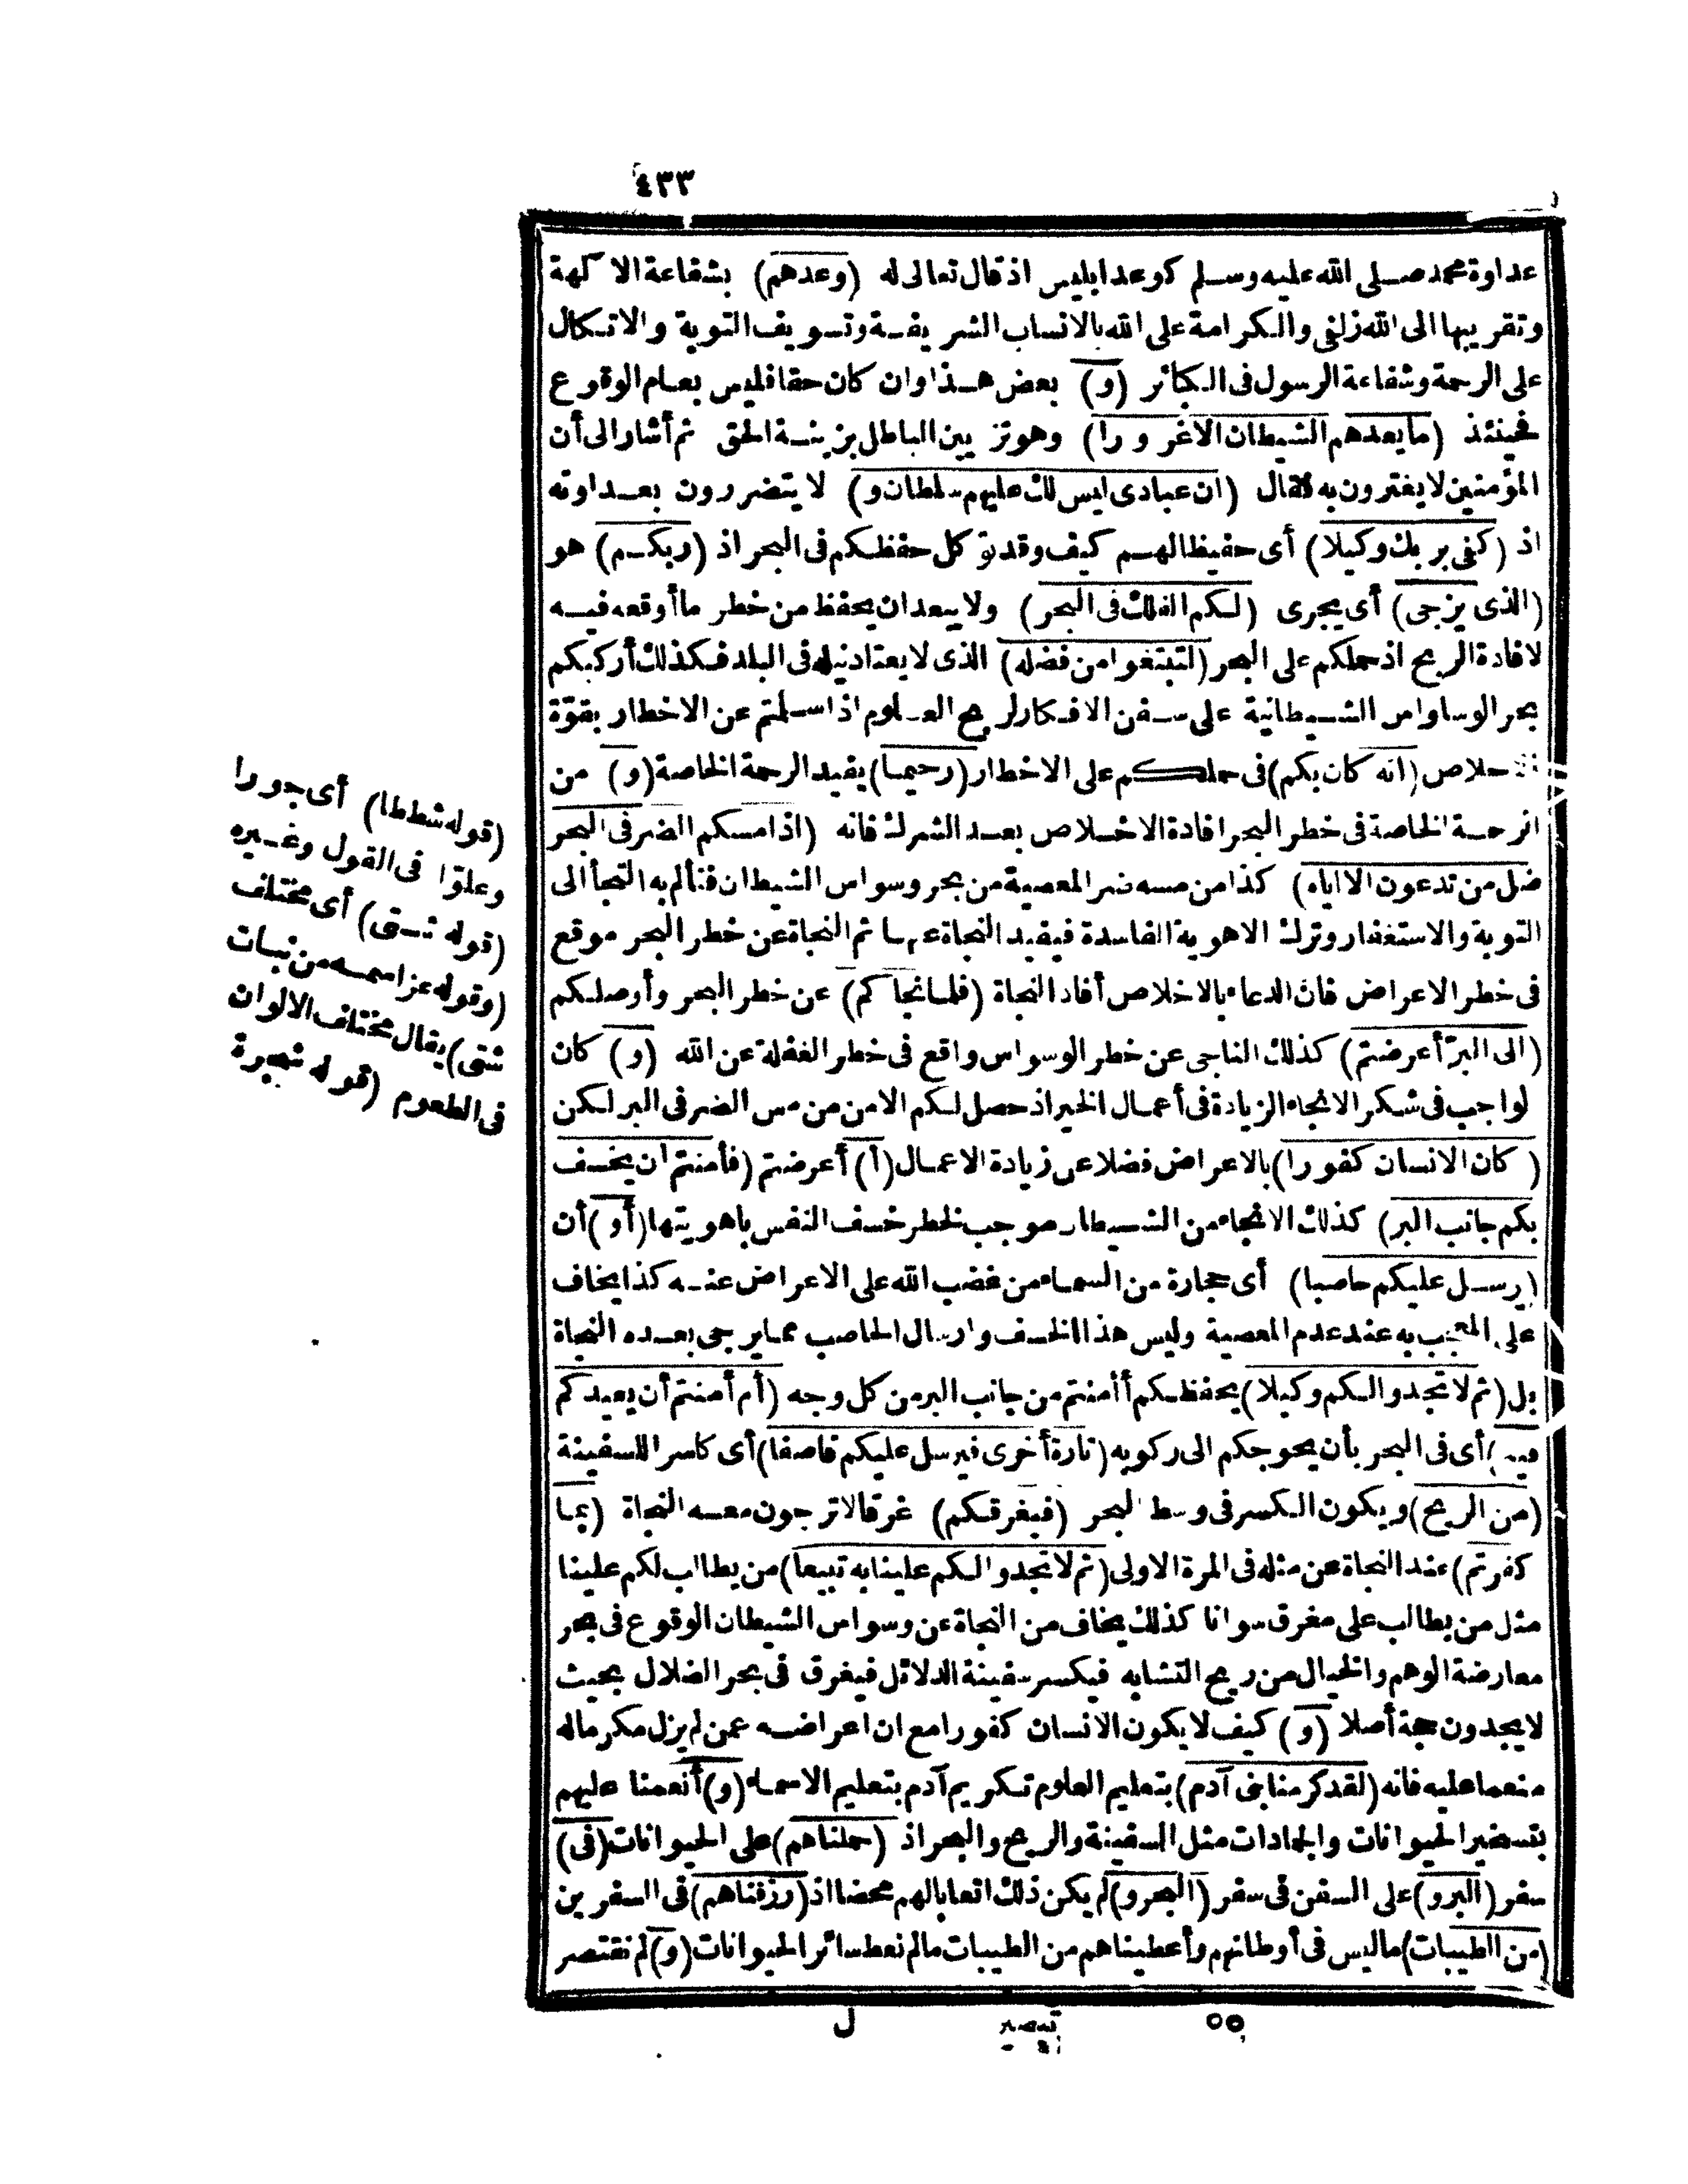 ٤٣٣
عداوة محمد صلى الله عليه وسلم كوعد ابليس اذ قال تعالى له (وعدهم) بشفاعة الا لهة
وتقريبها الى الله زلفى والكرامة على الله بالانساب الشريفة وتسويف التوبة والاتكال
على الرحمة وشفاعة الرسول فى الكبائر (و) بعض هذا وان كان حقا فليس بعام الوقوع
فحينئذ (ما يعدهم الشيطان الا غرورا) وهو تزيين الباطل بزينة الحق ثم أشار الى أن
المؤمنين لا يغترون به فقال (ان عبادى ليس لك عليهم سلطان و) لا يتضررون بعداوته
اذ (كفى بربك وكيلا) أى حفيظا لهم كيف وقد توكل حفظكم فى البحر اذ (ربكم) هو
(الذى يزجى) أى يجرى (لكم الفلك فى البحر) ولا يبعد ان يحفظ من خطر ما أوقعه فيه
لافادة الربح اذ حملكم على البحر (لتبتغوا من فضله) الذى لا يعتاد نيله فى البلد فكذلك أركبكم
بحر الوساوس الشيطانية على سفن الافكار لربح العلوم اذا سلمتم عن الاخطار بقوة
الاخلاص (انه كان بكم) فى حملكم على الاخطار (رحيما) يفيد الرحمة الخاصة (و) من
الرحمة الخاصة فى خطر البحر افادة الاخلاص بعد الشرك فانه (اذا مسكم الضر فى البحر
ضل من تدعون الا اياه) كذا من مسه ضر المعصية من بحر وسواس الشيطان فتألم به التجأ الى
التوبة والاستغفار وترك الاهوية الفاسدة فيفيد النجاة عنها ثم النجاة عن خطر البحر موقع
فى خطر الاعراض فان الدعاء بالاخلاص أفاد النجاة (فلما نجاكم) عن خطر البحر وأوصلكم
(الى البر أعرضتم) كذلك الناجى عن خطر الوسواس واقع فى خطر الغفلة عن الله (و) كان
لواجب فى شكر الانجاء الزيادة فى أعمال الخير اذ حصل لكم الامن من مس الضر فى البر لكن
(كان الانسان كفورا) بالاعراض فضلا عن زيادة الاعمال (أ) أعرضتم (فأمنتم ان يخسف
بكم جانب البر) كذلك الانجاء من الشيطان موجب لخطر خسف النفس باهويتها (أو) أن
(يرسل عليكم حاصبا) أى حجارة من السماء من غضب الله على الاعراض عنه كذا يخاف
على المعجب به عند عدم المعصية وليس هذا الخسف وارسال الحاصب مما يرجى بعده النجاة
بل (ثم لا تجدوا لكم وكيلا) يحفظكم أأمنتم من جانب البر من كل وجه (أم أمنتم أن يعيدكم
فيه) أى فى البحر بأن يحوجكم الى ركوبه (تارة أخرى فيرسل عليكم قاصفا) أى كاسرا للسفينة
(من الريح) ويكون الكسر فى وسط البحر (فيغرقكم) غرقا لا ترجون معه النجاة (بما
كفرتم) عند النجاة عن مثله فى المرة الاولى (ثم لا تجدوا لكم علينا به تبيعا) من يطالب لكم علينا
مثل من يطالب على مغرق سوانا كذلك يخاف من النجاة عن وسواس الشيطان الوقوع فى بحر
معارضة الوهم والخيال من ريح التشابه فيكسر سفينة الدلائل فيغرق فى بحر الضلال بحيث
لا يجدون حجة أصلا (و) كيف لا يكون الانسان كفورا مع ان اعراضه عمن لم يزل مكرما له
منعما عليه فانه (لقد كرمنا بنى آدم) بتعليم العلوم تكريم آدم بتعليم الاسماء (و) أنعمنا عليهم
بتسخير الحيوانات والجمادات مثل السفينة والريح والبحر اذ (حملناهم) على الحيوانات (فى)
سفر (البر و) على السفن فى سفر (البحر و) لم يكن ذلك اتعابا لهم محضا اذ (رزقناهم) فى السفرين
(من الطيبات) ما ليس فى أوطانهم وأعطيناهم من الطيبات ما لم نعط سائر الحيوانات (و) لم نقتصر
(قوله شططا) أى جورا
وعلوا فى القول وغيره
(قوله شتى) أى مختلف
(وقوله عز اسمه من نبات
شتى) يقال مختلف الالوان
فى الطعوم (قوله شجرة
٥٥ تبصير ل